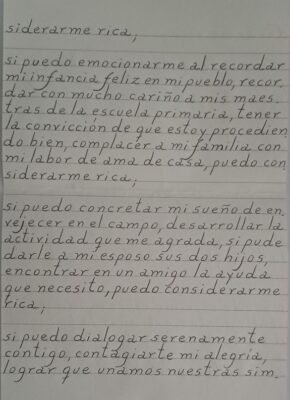 siderarme rica;
si puedo emocionarme al recordar
mi infancia feliz en mi pueblo, recor.
dar con mucho cariño a mis maes.
tras de la escuela primaria, tener
la convicción de que estoy procedien
do bien, complacer a mi familia con
mi labor de ama de casa, puedo con
siderarme rica;
si puedo concretar mi sueño de en.
vejecer en el campo, desarrollar la
actividad que me agrada, si pude
darle a mi esposo sus dos hijos,
encontrar en un amigo la ayuda
que necesito, puedo considerarme
rica;
si puedo dialogar serenamente
contigo, contagiarte mi alegría,
lograr que unamos nuestras sim.